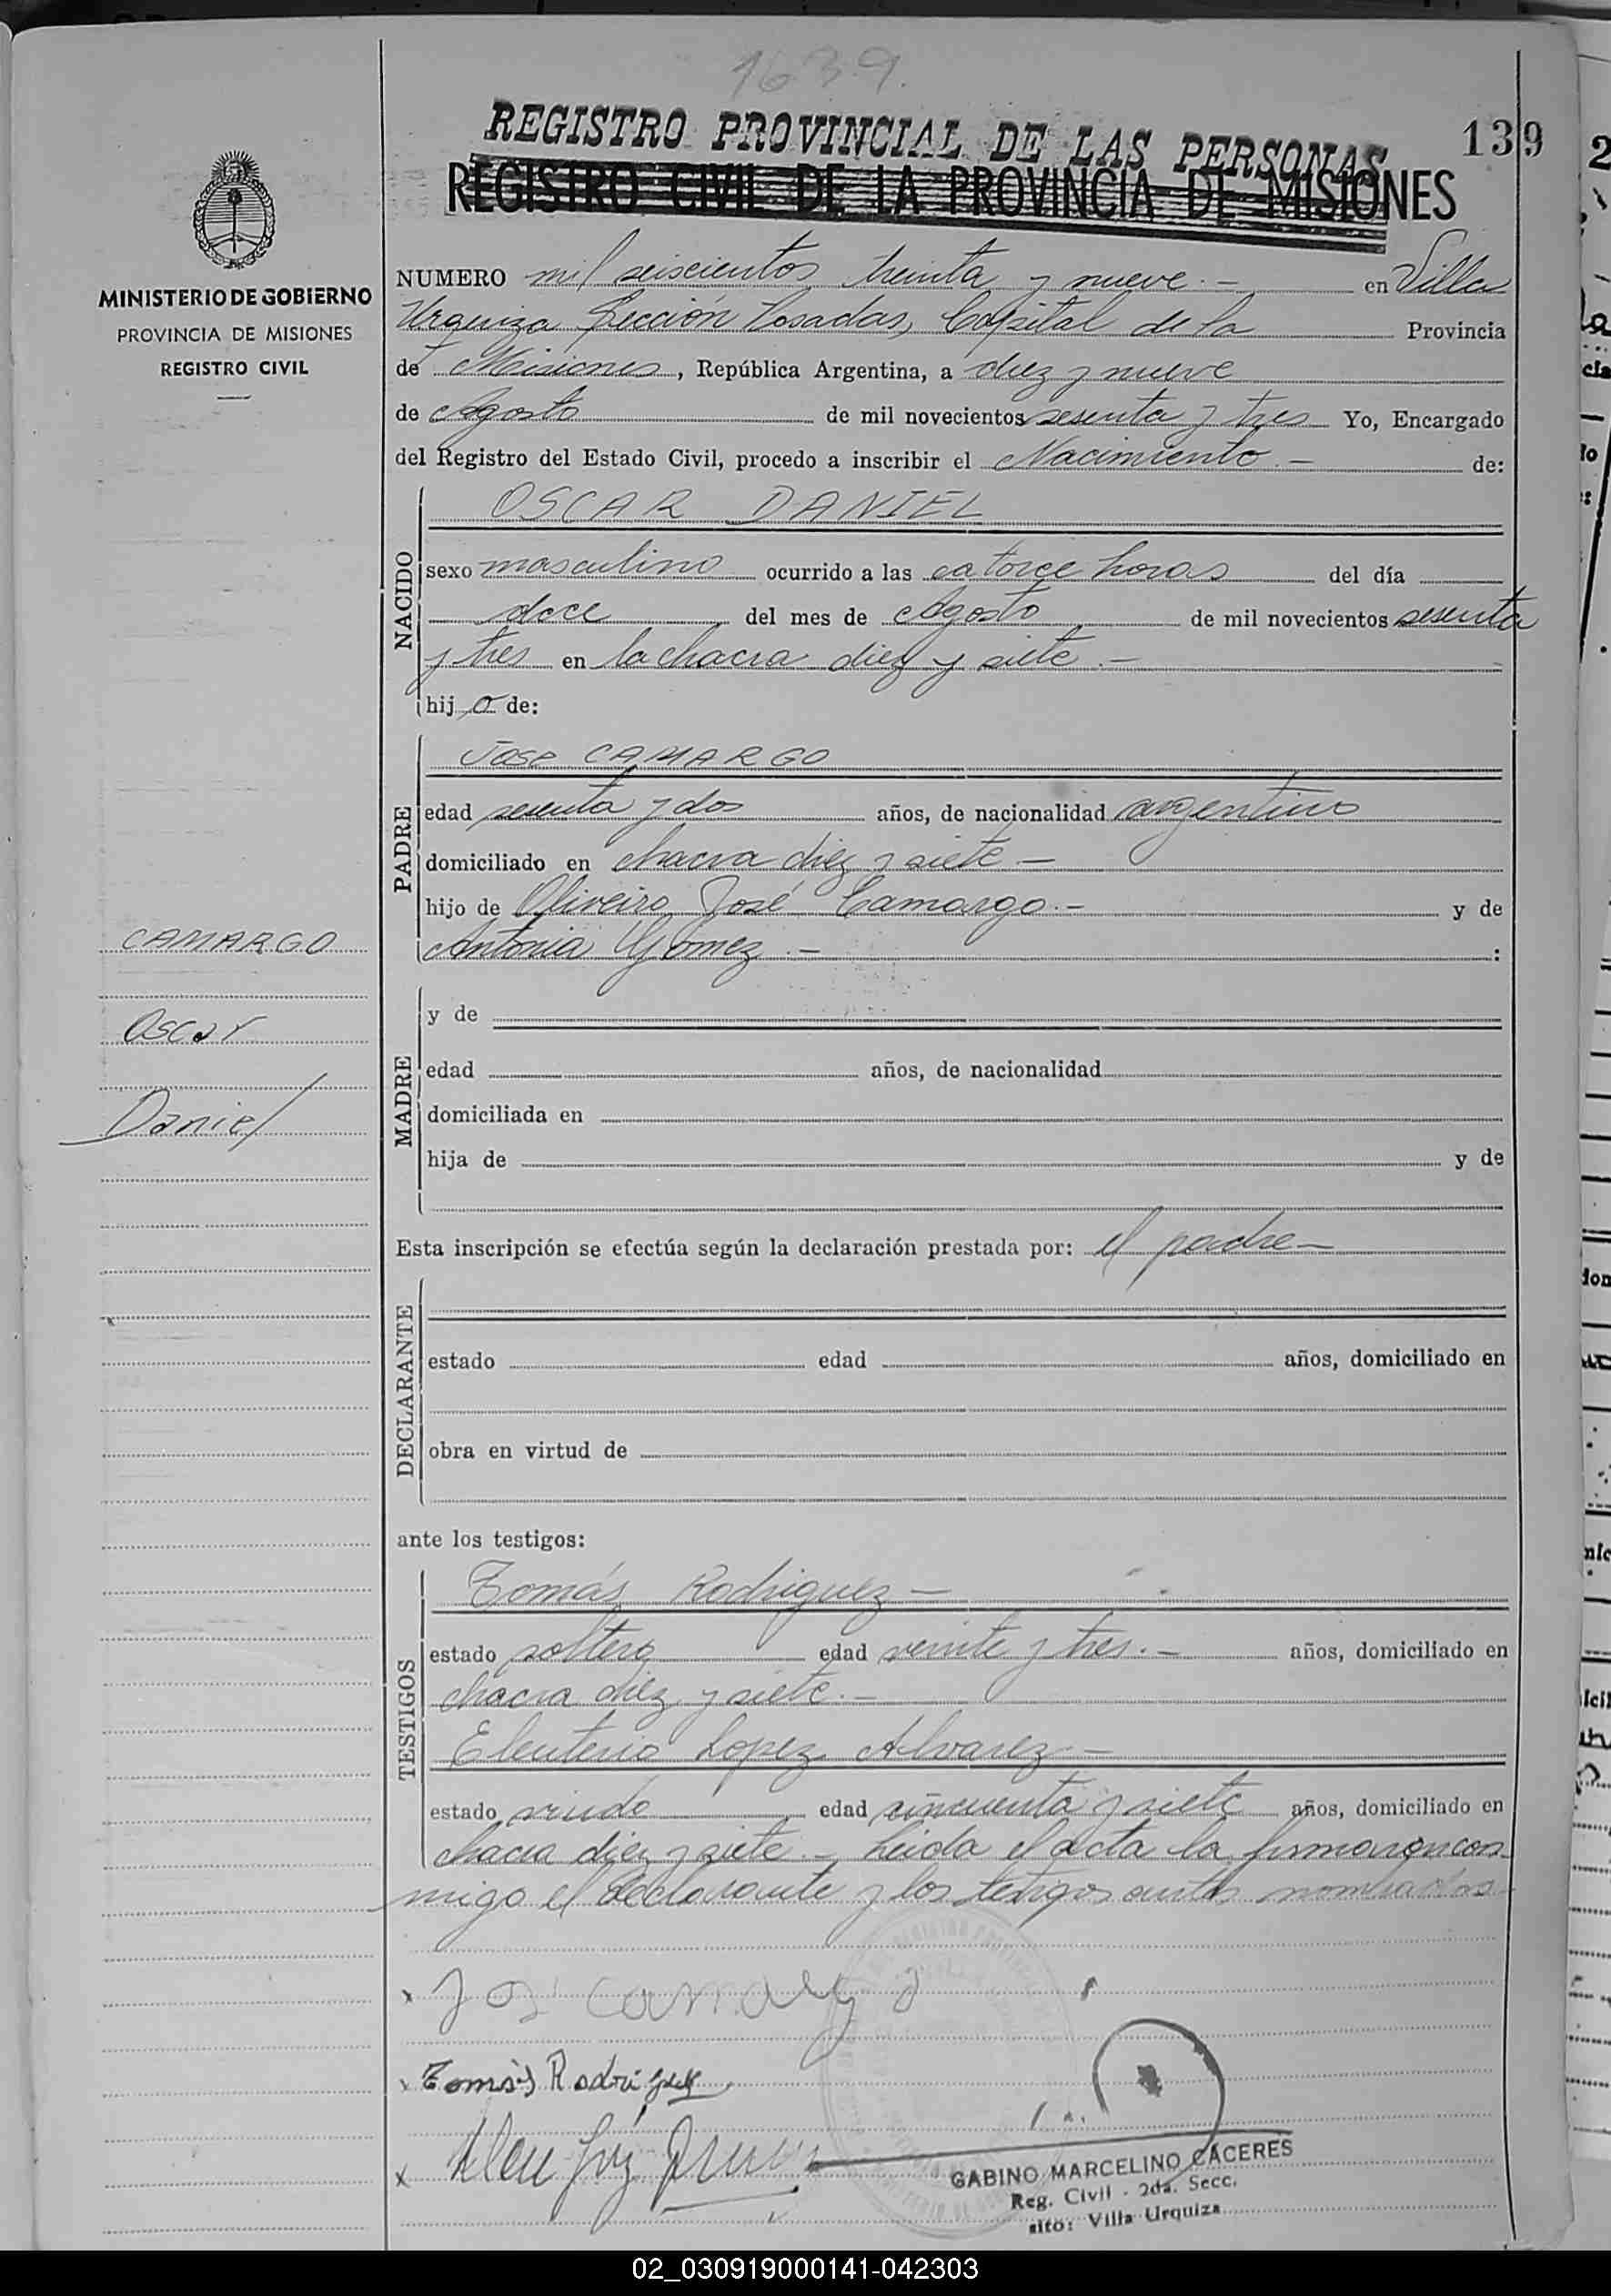 1639.
REGISTRO PROVINCIAL DE LAS PERSONAS
139
REGISTRO CIVIL DE LA PROVINCIA DE MISIONES
MINISTERIO DE GOBIERNO
PROVINCIA DE MISIONES
REGISTRO CIVIL
NUMERO mil seiscientos treinta y nueve.- en Villa
Urquiza Sección Posadas, Capital de la Provincia
de Misiones, República Argentina, a diez y nueve
de Agosto de mil novecientos sesenta y tres Yo, Encargado
del Registro del Estado Civil, procedo a inscribir el Nacimiento.- de:
NACIDO
OSCAR DANIEL
sexo masculino ocurrido a las catorce horas del día
doce del mes de Agosto de mil novecientos sesenta
y tres en la chacra diez y siete.-
hijo de:
PADRE
José CAMARGO
edad sesenta y dos años, de nacionalidad argentino
domiciliado en chacra diez y siete-
hijo de Oliveiro José Camargo.- y de
Antonia Gomez.- :
CAMARGO
Oscar
Daniel
MADRE
y de
edad años, de nacionalidad
domiciliada en
hija de y de
Esta inscripción se efectúa según la declaración prestada por: el padre-
DECLARANTE
estado edad años, domiciliado en
obra en virtud de
ante los testigos:
TESTIGOS
Tomás Rodriguez-
estado soltero edad veinte y tres.- años, domiciliado en
chacra diez y siete.-
Eleuterio Lopez Alvarez-
estado viudo edad cincuenta y siete años, domiciliado en
chacra diez y siete.- Leida el acta la firmaron con
migo el declarante y los testigos antes nombrados
x José Camargo
x Tomás Rodriguez
x
GABINO MARCELINO CACERES
Reg. Civil - 2da. Secc.
sito: Villa Urquiza
02_030919000141-042303